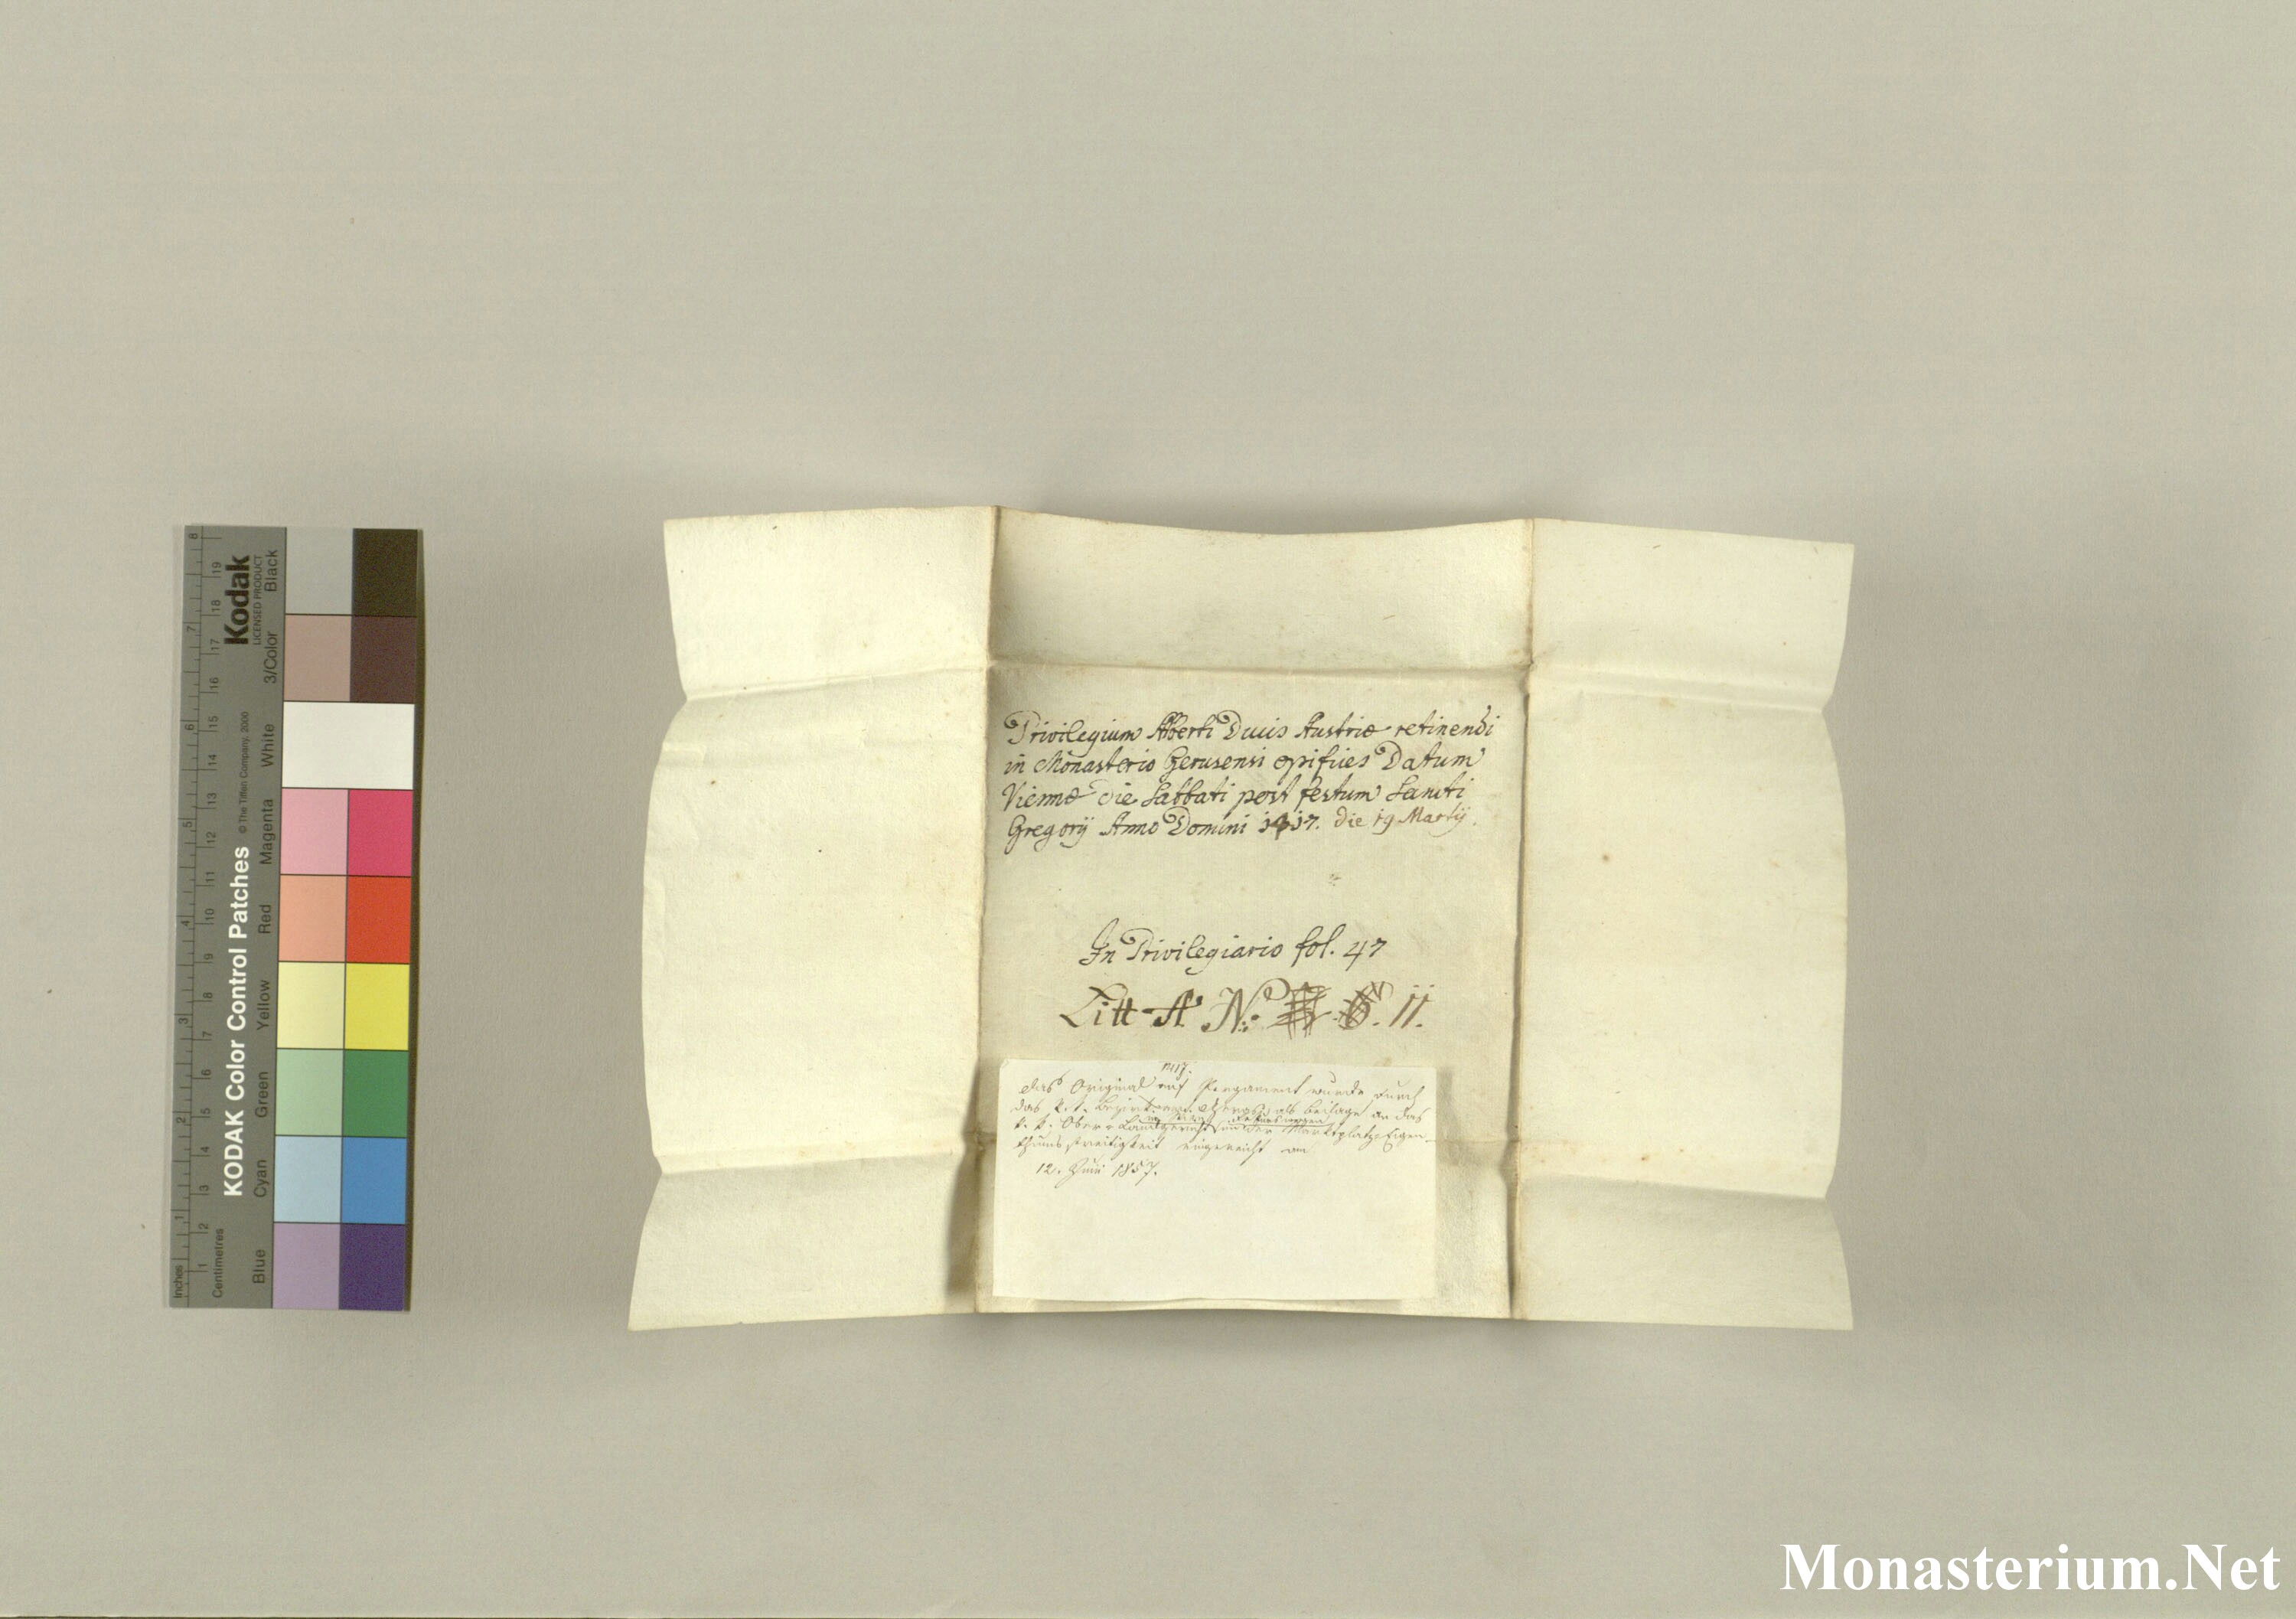 Privilegium Alberti Ducis Austriæ retinendi
in Monasterio Gerusensi opifices Datum
Viennæ die Sabbati post festum Sancti
Gregorÿ Anno Domini 1417. die 19 Martÿ.
In Privilegiario fol. 47
Litt A No 11.
1417.
Das Original auf Pergament wurde durch
das k. k. Bezirksamt als Beilage an das
k. k. Ober-Landgericht in der Marktplatz-Eigen-
thumsstreitigkeit eingereicht am
12. Juni 1857.
KODAK Color Control Patches © The Tiffen Company, 2000
Kodak
LICENSED PRODUCT
Black
3/Color
White
Magenta
Red
Yellow
Green
Cyan
Blue
Inches
1 2 3 4 5 6 7 8
Centimetres
1 2 3 4 5 6 7 8 9 10 11 12 13 14 15 16 17 18 19
Monasterium.Net